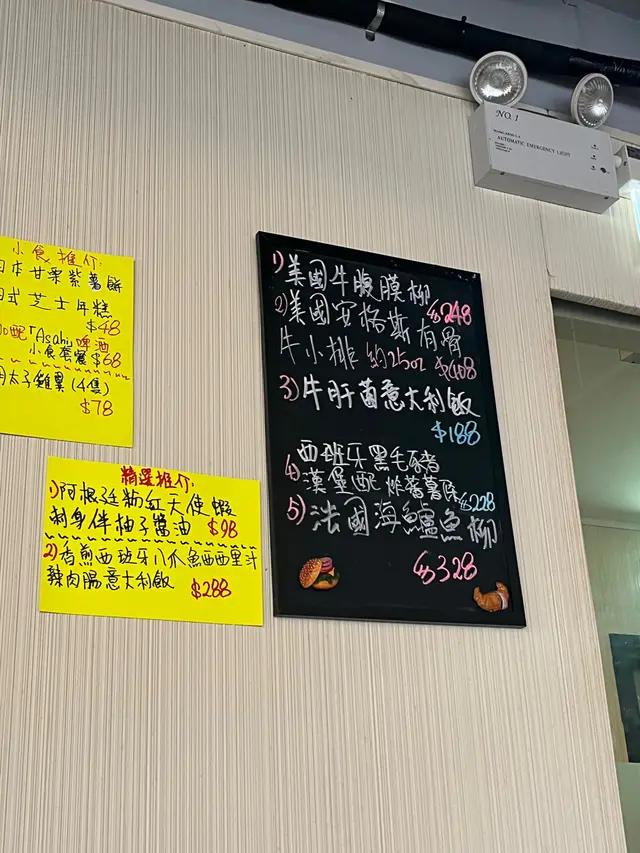 小食推介:
日本甘栗紫薯餅
式芝士年糕
$48
加配「Asahi」啤酒
小食套餐 $68
太子雞翼 (4隻)
$78
精選推介:
1) 阿根廷粉紅天使蝦
刺身伴柚子醬油 $98
2) 香煎西班牙八爪魚西西里汁
辣肉腸意大利飯 $288
1) 美國牛腹膜柳
$248
2) 美國安格斯有骨
牛小排 約25oz $408
3) 牛肝菌意大利飯
$188
4) 西班牙黑毛豬
漢堡配炸蕃薯條 $228
5) 法國海鱸魚柳
$328
NO. 1
AUTOMATIC EMERGENCY LIGHT